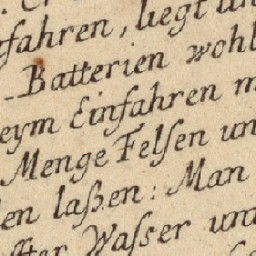 fahren, liegt
Batterien wohl
eym Einfahren
Menge Felsen un
en laßen: Man
Wasser und